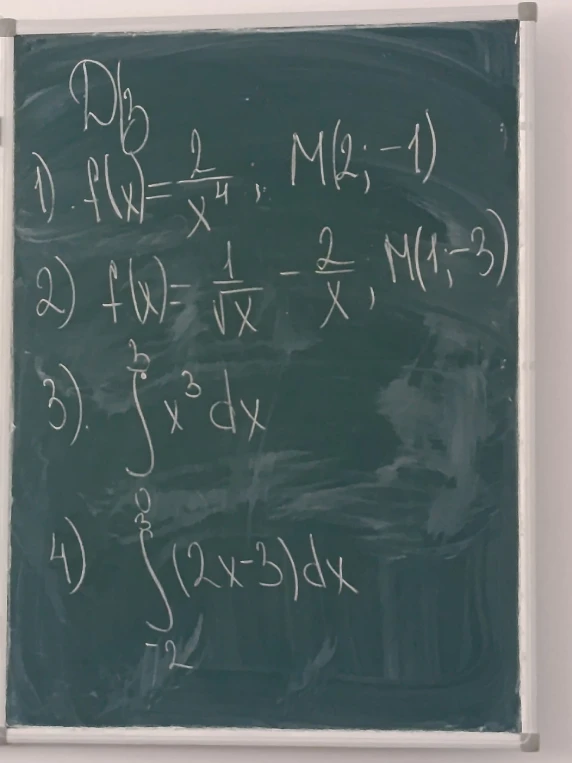 D/з
1) f(x) = 2/x⁴; M(2; -1)
2) f(x) = 1/√x - 2/x; M(1; -3)
3). ∫₀³ x³ dx
4) ∫₋₂³ (2x-3) dx